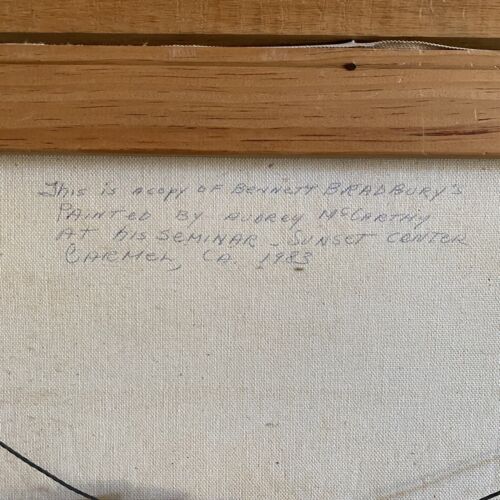 This is a copy of Bennett BRADBURY'S
PAINTED BY AUDREY McCARTHY
AT his SEMINAR - SUNSET CENTER
CARMEL, CA. 1983